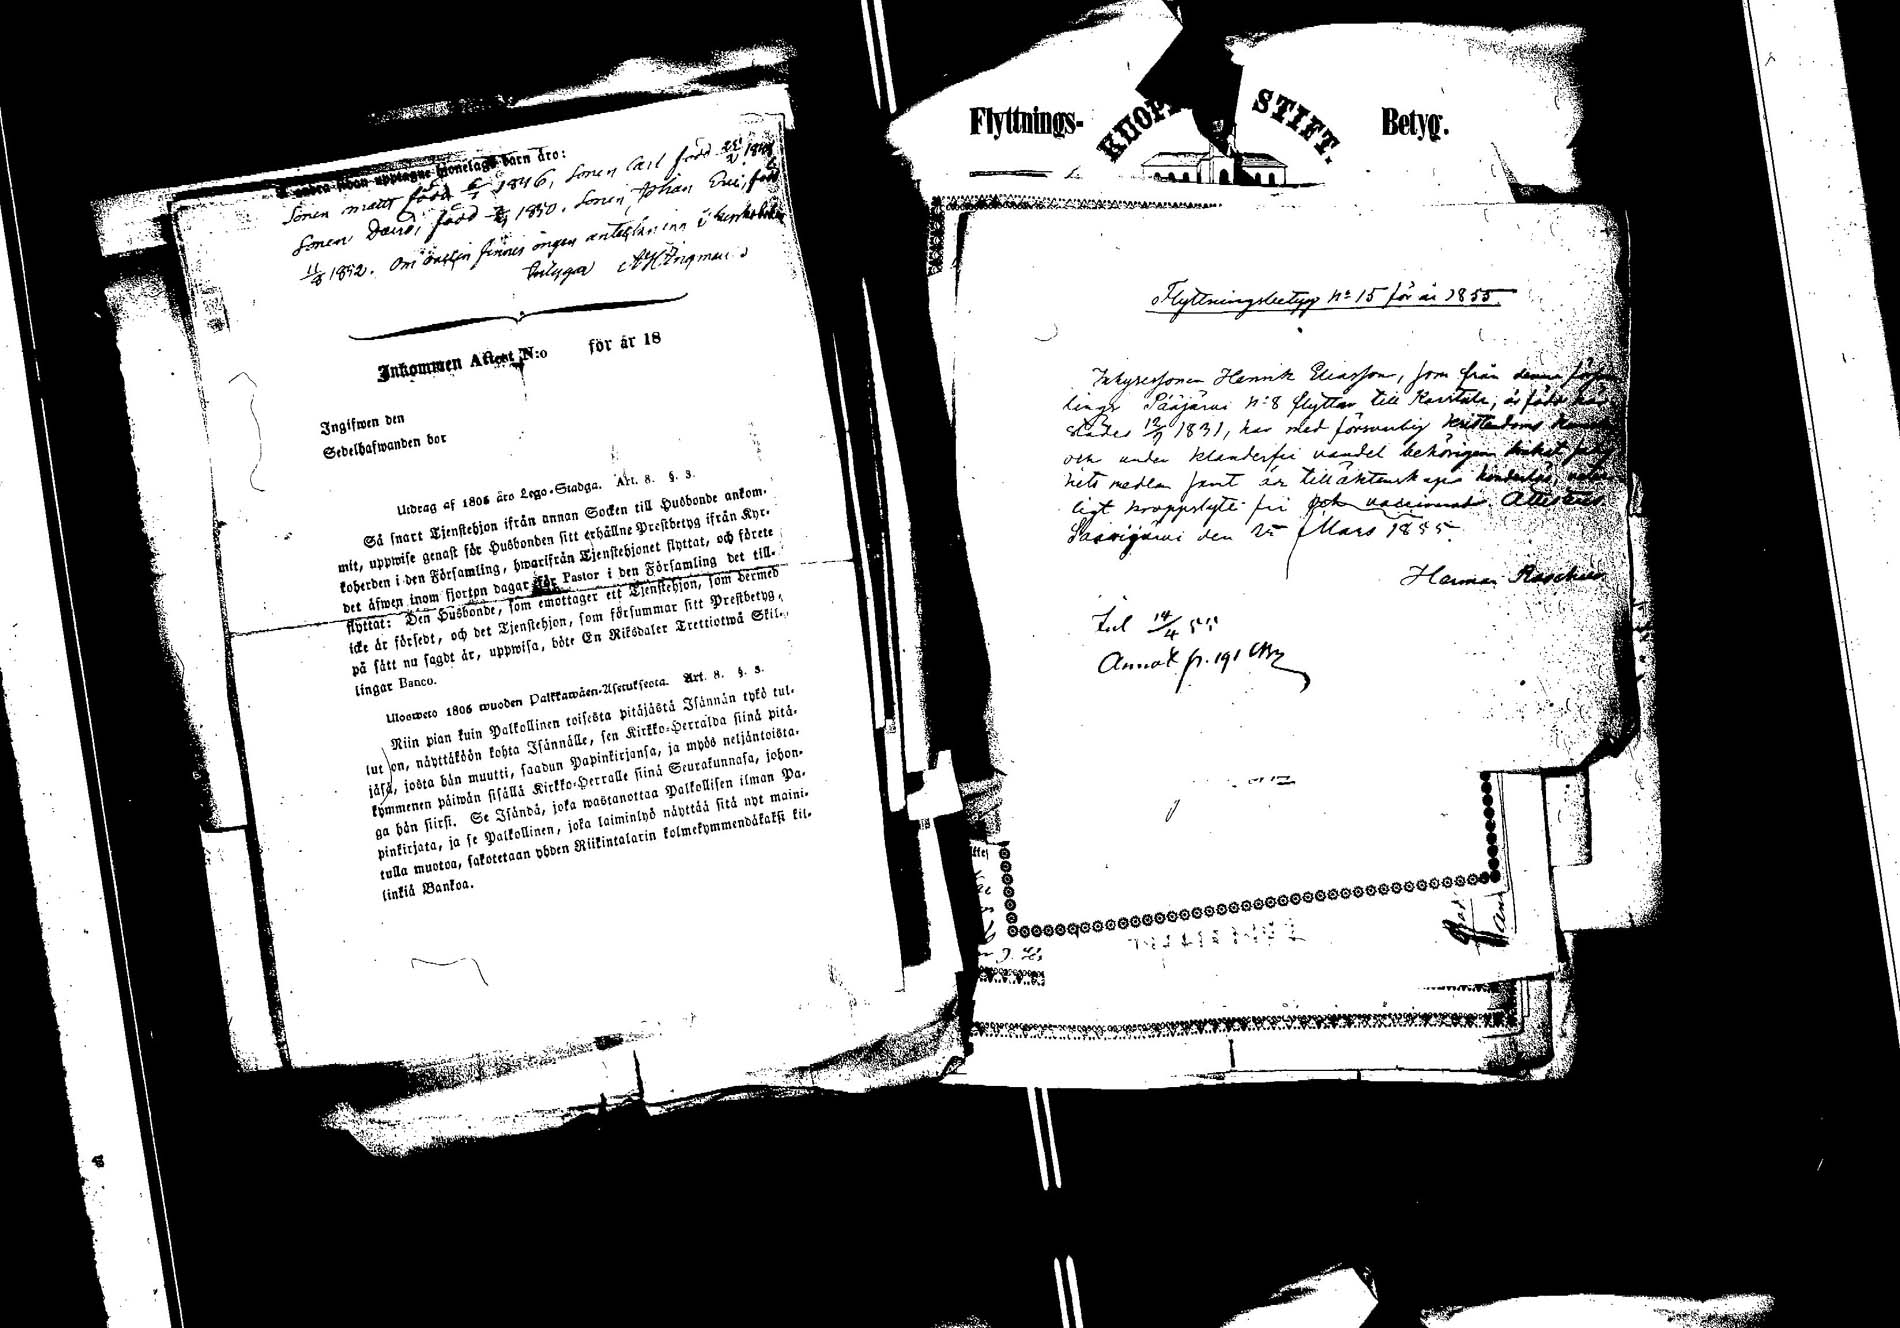 andra sidan upptagne Honelags barn äro:
Sonen Matts född 6/7 1846, Sonen Carl född
Sonen David, född 1850. Sonen, Johan Eric, född
11/8 1852. Om finnes ingen anteckning i kyrkoboken
betygar
Inkommen Attest N:o för år 18
Ingifwen den
Sedelhafwanden bor
Utdrag af 1805 års Lego-Stadga. Art. 8. §. 3.
Så snart Tjenstehjon ifrån annan Socken till Husbonde ankom-
mit, uppwise genast för Husbonden sitt erhållne Prestbetyg ifrån Kyr-
koherden i den Församling, hwarifrån Tjenstehjonet flyttat, och förete
det äfwen inom fjorton dagar för Pastor i den Församling det till-
flyttat: Den Husbonde, som emottager ett Tjenstehjon, som dermed
icke är försedt, och det Tjenstehjon, som försummar sitt Prestbetyg,
på sätt nu sagdt är, uppwisa, böte En Riksdaler Trettiotwå Skil-
lingar Banco.
Ulosweto 1805 wuoden Palkkawäen-Asetuksesta. Art. 8. §. 3.
Niin pian kuin Palkollinen toisesta pitäjästä Isännän tykö tul-
lut on, näyttäköön kohta Isännälle, sen Kirkko-Herralda siinä pitä-
jäsä, josta hän muutti, saadun Papinkirjansa, ja myös neljäntoista-
kymmenen päiwän sisällä Kirkko-Herralle siinä Seurakunnasa, johon-
ga hän siirsi. Se Isändä, joka wastanottaa Palkollisen ilman Pa-
pinkirjata, ja se Palkollinen, joka laiminlyö näyttää sitä nyt maini-
tulla muotoa, sakotetaan yhden Riikintalarin kolmekymmendäkaksi kil-
linkiä Bankoa.
Flyttnings- KUOPIO STIFT. Betyg.
Flyttningsbetyg N:o 15 för år 1855.
Inhysessonen Henrik Eliasson, som från denna försam
lings Pääjärvi N:8 flyttar till Karstula, är född här
städes 12/7 1831, har med försvarlig kristendoms
och under klanderfri vandel behörigen
hets medlen samt är till äktenskaps hinderlös,
ligt kroppslyte fri och vaccinerad. Attesteras
Saarijärvi den 25 Mars 1855.
Herman Roschier
14/4 55
Annot p. 191